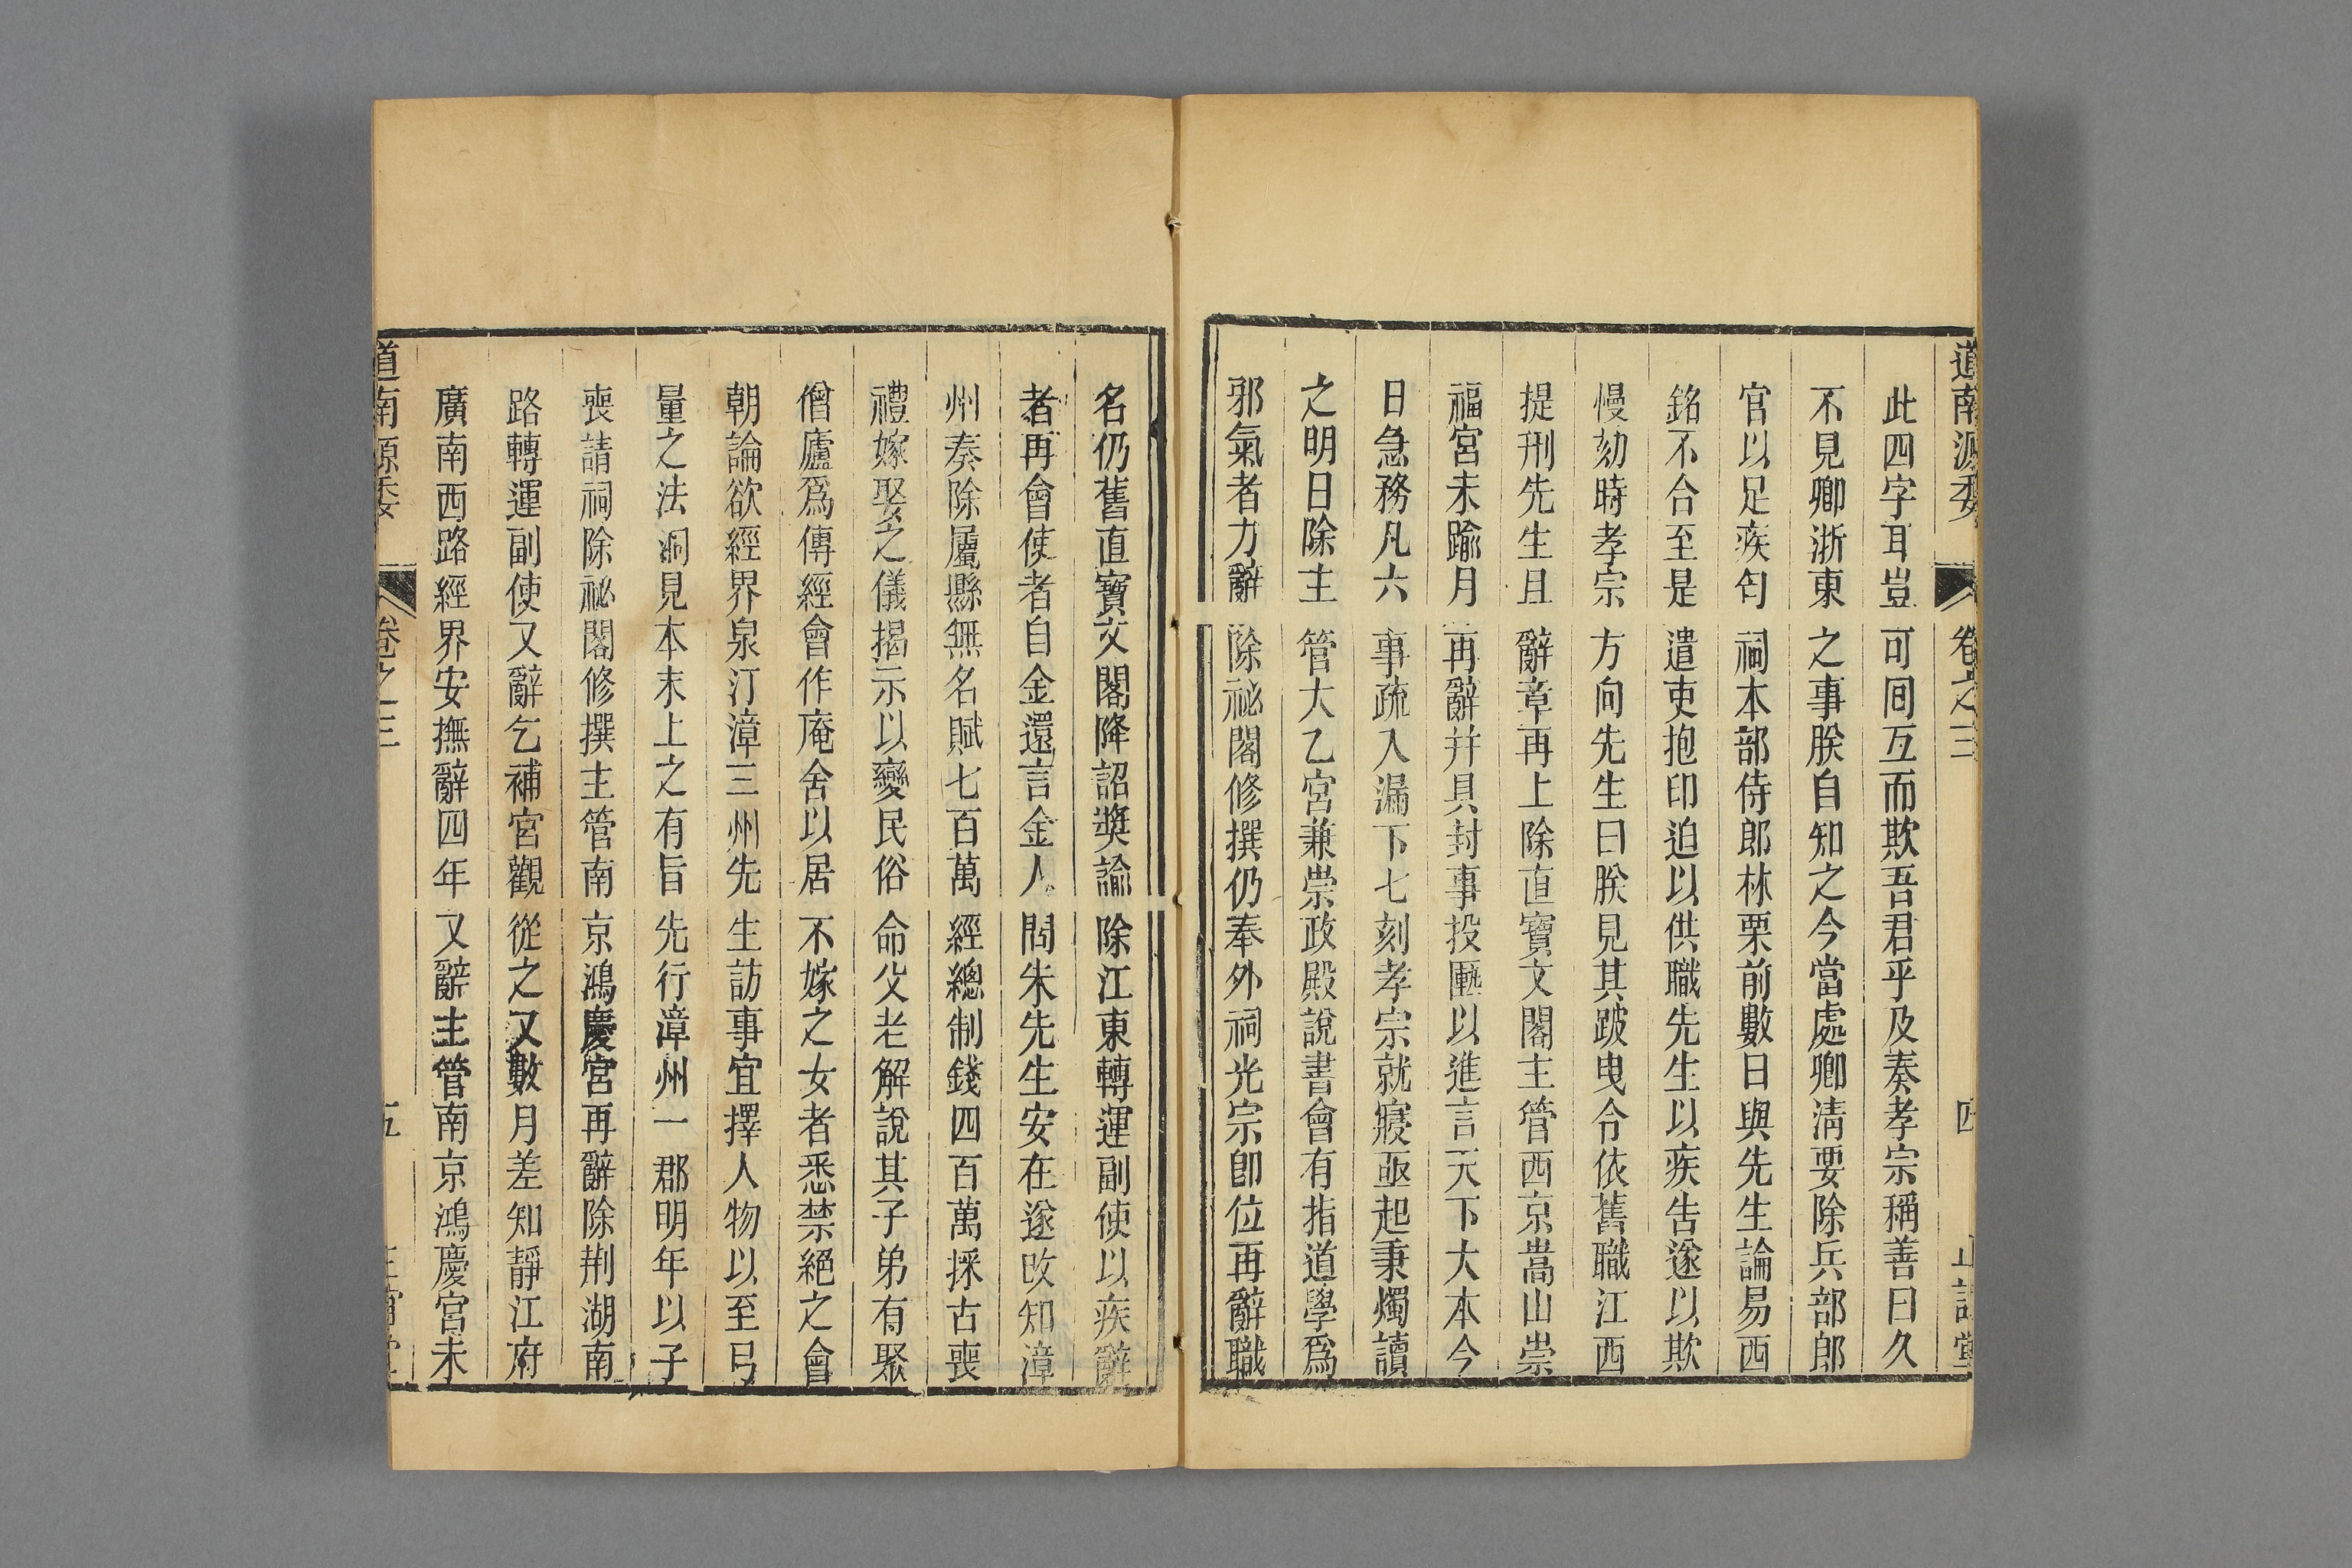 道南源委 卷之三 四 正誼堂
此四字耳豈可囘互而欺吾君乎及奏孝宗稱善曰久
不見卿浙東之事朕自知之今當處卿清要除兵部郎
官以足疾匄祠本部侍郎林栗前數日與先生論易西
銘不合至是遣吏抱印迫以供職先生以疾告遂以欺
慢劾時孝宗方向先生曰朕見其跛曳令依舊職江西
提刑先生且辭章再上除直寶文閣主管西京嵩山崇
福宮未踰月再辭并具封事投匭以進言天下大本今
日急務凡六事疏入漏下七刻孝宗就寢亟起秉燭讀
之明日除主管大乙宮兼崇政殿說書會有指道學爲
邪氣者力辭除祕閣修撰仍奉外祠光宗卽位再辭職
名仍舊直寶文閣降詔獎諭除江東轉運副使以疾辭
者再會使者自金還言金人問朱先生安在遂改知漳
州奏除屬縣無名賦七百萬經總制錢四百萬採古喪
禮嫁娶之儀揭示以變民俗命父老解說其子弟有聚
僧廬爲傳經會作庵舍以居不嫁之女者悉禁絕之會
朝論欲經界泉汀漳三州先生訪事宜擇人物以至弓
量之法洞見本末上之有旨先行漳州一郡明年以子
喪請祠除祕閣修撰主管南京鴻慶宮再辭除荆湖南
路轉運副使又辭乞補宮觀從之又數月差知靜江府
廣南西路經界安撫辭四年又辭主管南京鴻慶宮未
道南源委 卷之三 五 正誼堂